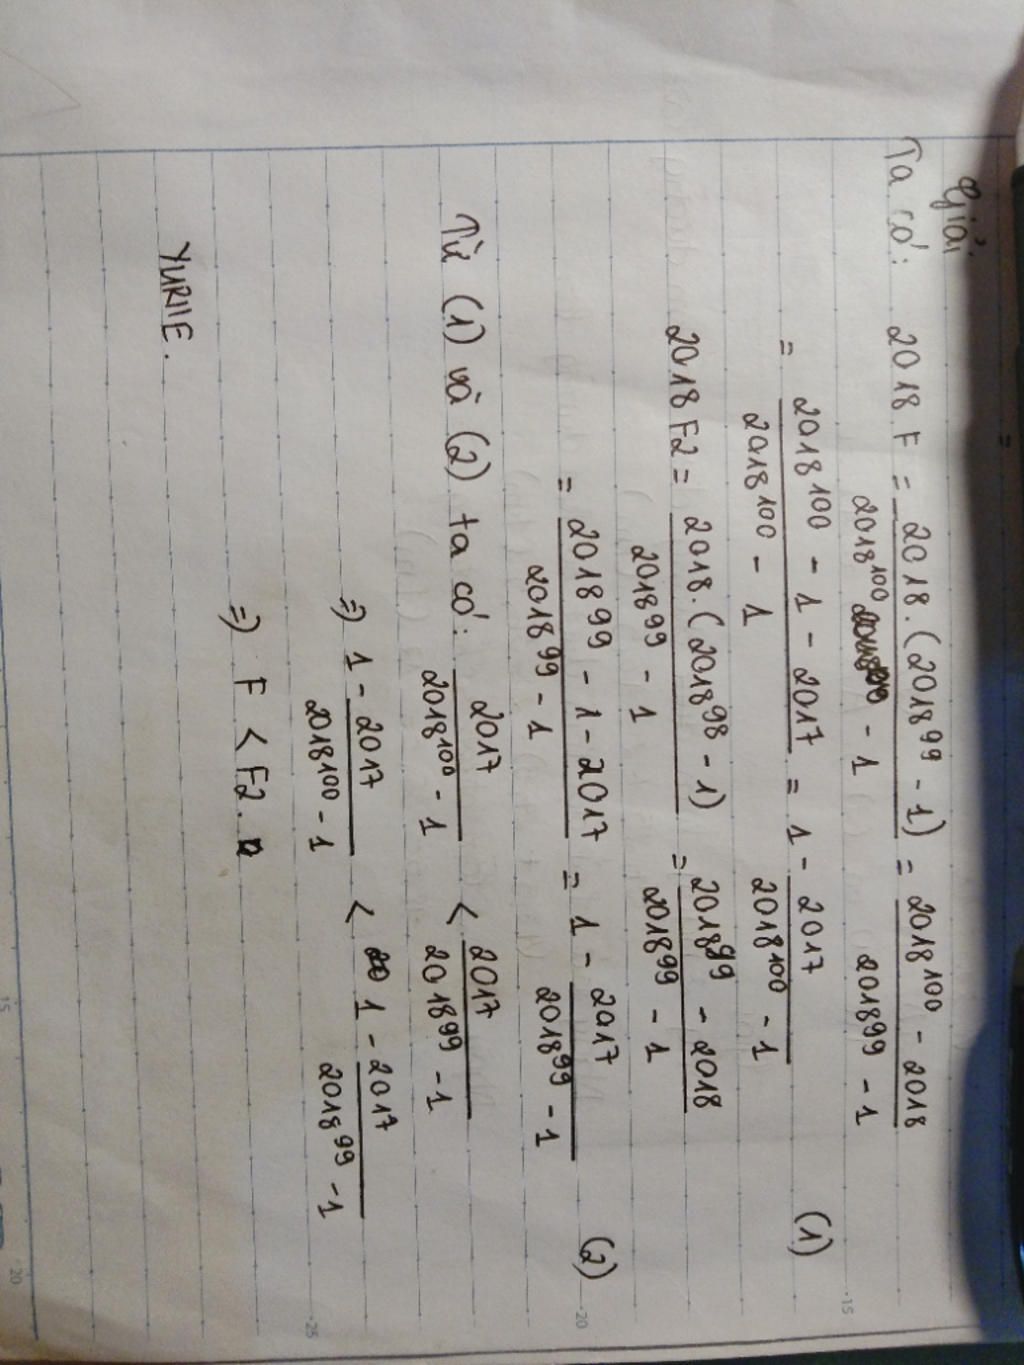 Giải
Ta có: 2018 F = 2018.(2018^99 - 1) / 2018^100 - 1 = 2018^100 - 2018 / 201899 - 1
= 2018^100 - 1 - 2017 / 2018^100 - 1 = 1 - 2017 / 2018^100 - 1 (1)
2018 F2 = 2018.(2018^98 - 1) / 2018^99 - 1 = 2018^99 - 2018 / 2018^99 - 1
= 2018^99 - 1 - 2017 / 2018^99 - 1 = 1 - 2017 / 2018^99 - 1 (2)
Từ (1) và (2) ta có: 2017 / 2018^100 - 1 < 2017 / 2018^99 - 1
=) 1 - 2017 / 2018^100 - 1 < 1 - 2017 / 2018^99 - 1
=) F < F2.
YURIIE.
15
20
25
15
20